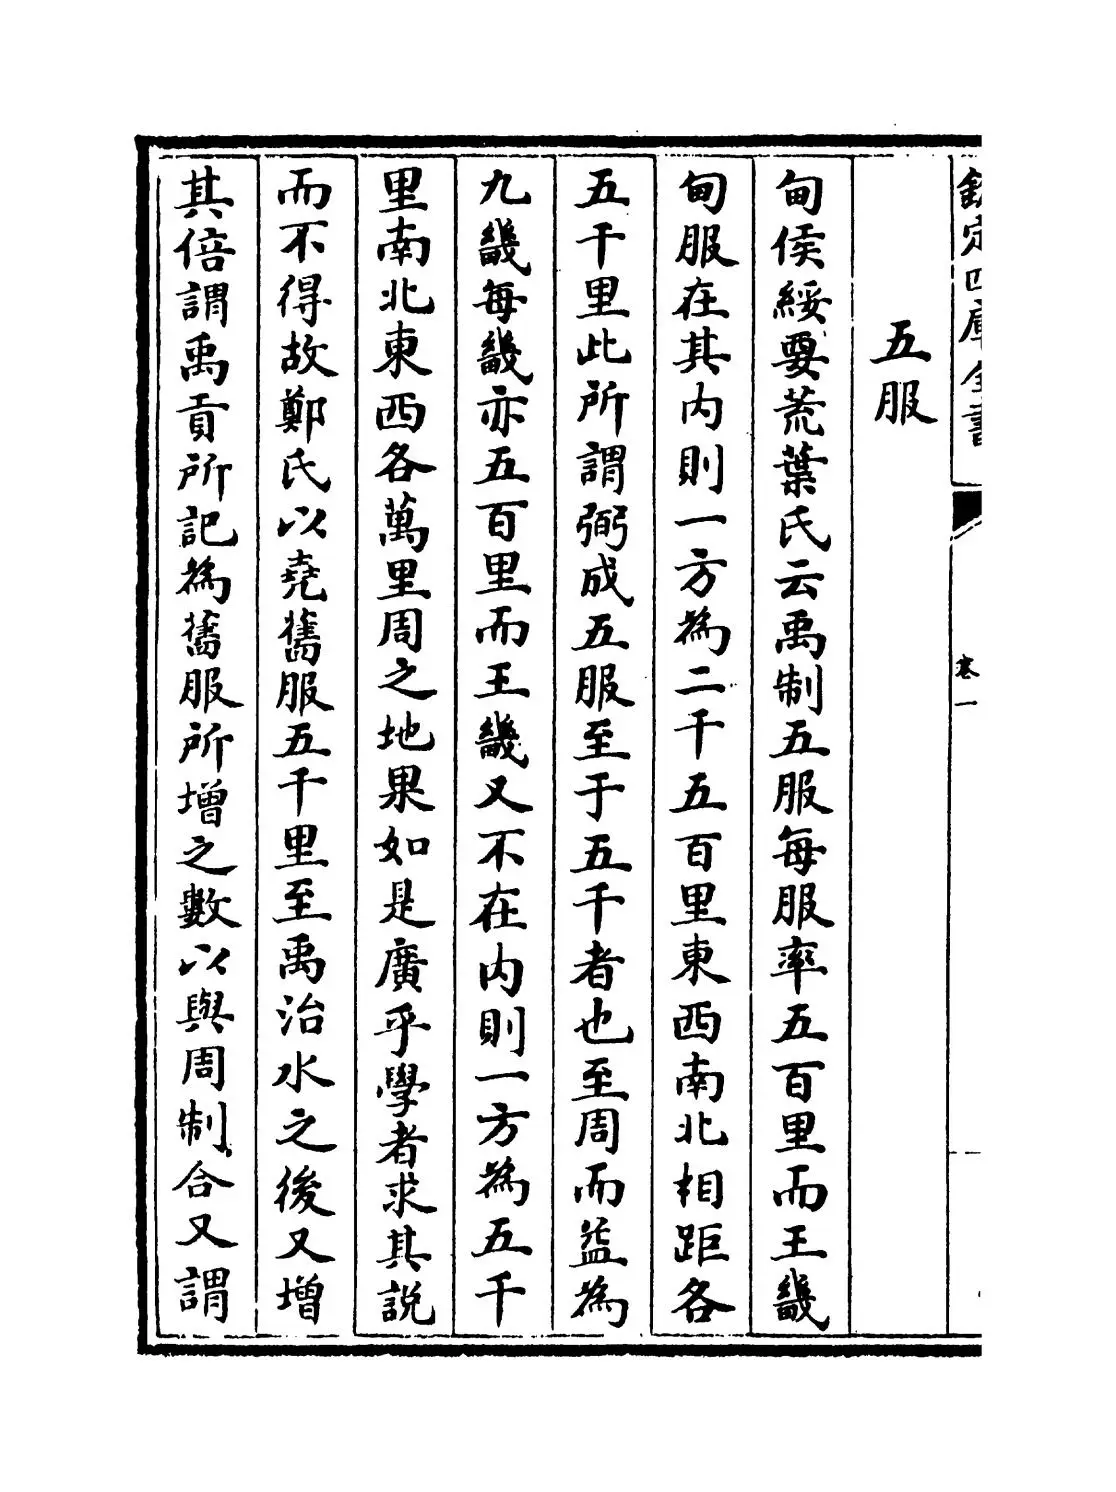 欽定四庫全書
卷一
五服
甸侯綏要荒葉氏云禹制五服每服率五百里而王畿
甸服在其内則一方為二千五百里東西南北相距各
五千里此所謂弼成五服至于五千者也至周而益為
九畿每畿亦五百里而王畿又不在内則一方為五千
里南北東西各萬里周之地果如是廣乎學者求其説
而不得故鄭氏以堯舊服五千里至禹治水之後又增
其倍謂禹貢所記為舊服所增之數以與周制合又謂